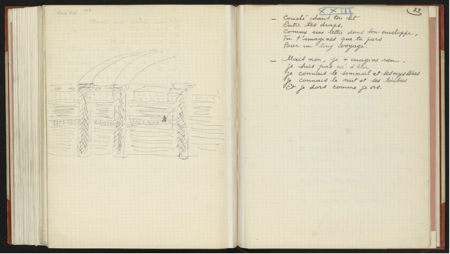 XXIII
23
— Couché dans ton lit
Entre tes draps,
Comme une lettre dans son enveloppe,
Tu t'imagines que tu pars
Pour un long voyage.
— Mais non, je n'imagine rien.
Je connais le sommeil et ses mystères
Je connais la nuit et ses
Et je dors comme je vis.